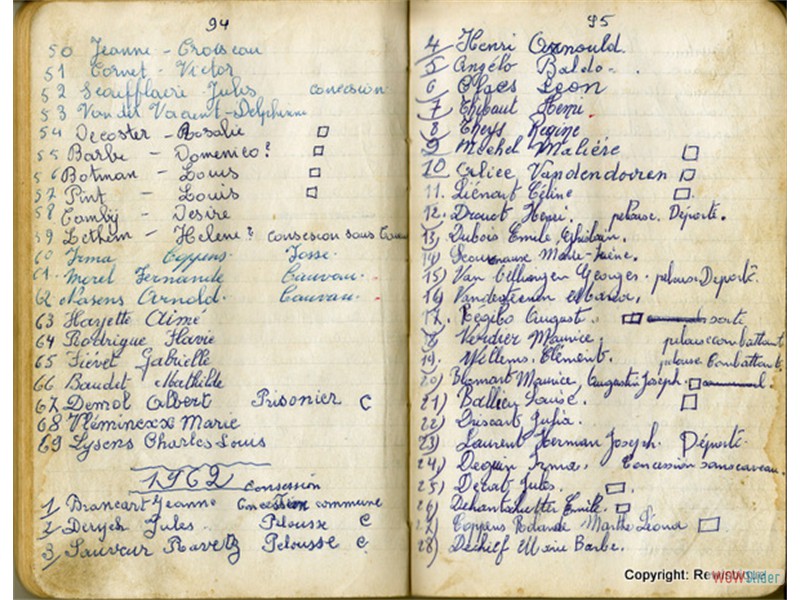 94
50 Jeanne - Croiseau
51 Cornet - Victor
52 Scoufflaire Jules concession
53 Vandit Vacent - Delphinne
54 Decoster - Rosalie
55 Barbe - Domenico?
56 Botman - Louis
57 Pint - Louis
58 Camby - Desire
59 Lethem - Helene? concession sous
60 Irma Coppens Josse
61. Morel Fernande Cauveau.
62 Masens Arnold. Cauvau.
63 Hayette Aimé
64 Rodrigue Flavie
65 Fiévet Gabrielle
66 Baudet Mathilde
67 Demol Albert Prisonier C
68 Vléminexx Marie
69 Lysens Charles Louis
1962 Concession
1 Brancart Jeanne Concession commune
2 Deryck Jules Pelousse C
3 Sauveur Ravetz Pelousse C
95
4 Henri Arnould.
5 Angélo Baldo
6 Léon
7 Thibaut Henri
8 Theys Regine
9 Mechel Maliére
10 Alice Vandendoiren
11. Liénart Céline
12. Drouot Henri. pelouse. Déporté.
13) Dubois Emile Ghislain.
14) Marie
15) Van Cellingen Georges. pelouse Deporté.
16)
17. Regibo August. sorte
18 Verdier Maurice. pelouse combattant
19. Willems. Clément. pelouse Combattant.
20) Blamart Maurice, Augustin Joseph.
21) Ballieu Louise.
22) Duscart Julia.
23) Laurent Herman Joseph. Déporté
24) Dequin Irma. Concession sans caveau.
25) Derat Jules.
26) Emile.
27) Coppens Rolande Martha Léona
28) Dechief Marie Barbe.
Copyright:
WOWSlider